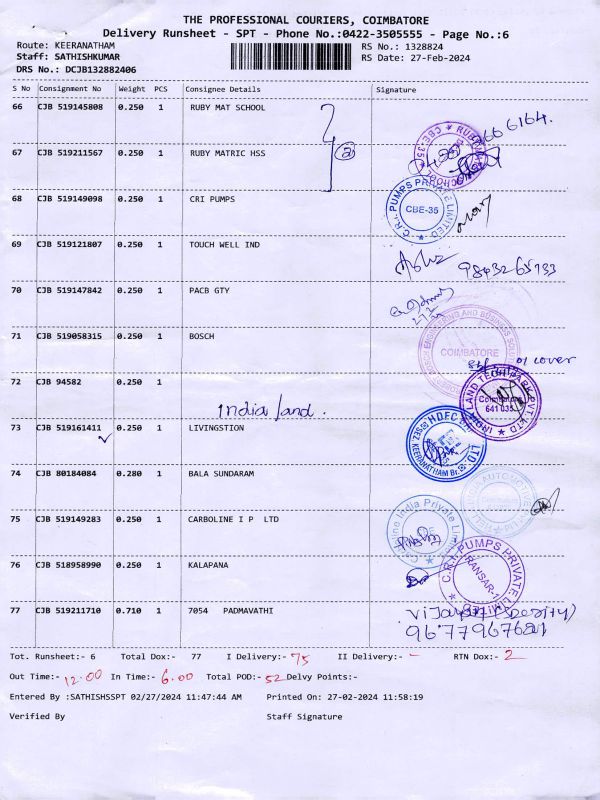 THE PROFESSIONAL COURIERS, COIMBATORE
Delivery Runsheet - SPT - Phone No.:0422-3505555 - Page No.:6
Route: KEERANATHAM RS No.: 1328824
Staff: SATHISHKUMAR RS Date: 27-Feb-2024
DRS No.: DCJB132882406
S No Consignment No Weight PCS Consignee Details Signature
66 CJB 519145808 0.250 1 RUBY MAT SCHOOL
67 CJB 519211567 0.250 1 RUBY MATRIC HSS
CBE-35
68 CJB 519149098 0.250 1 CRI PUMPS
C.R.I. PUMPS PRIVATE LIMITED
CBE-35
69 CJB 519121807 0.250 1 TOUCH WELL IND
9843265733
70 CJB 519147842 0.250 1 PACB GTY
71 CJB 519058315 0.250 1 BOSCH
COIMBATORE
01 cover
72 CJB 94582 0.250 1
India land.
Coimbatore
641 035
73 CJB 519161411 0.250 1 LIVINGSTION
SEZ KEERANATHAM Br.
74 CJB 80184084 0.280 1 BALA SUNDARAM
75 CJB 519149283 0.250 1 CARBOLINE I P LTD
76 CJB 518958990 0.250 1 KALAPANA
C.R.I. PUMPS PRIVATE LIMITED
RANSAR-1
77 CJB 519211710 0.710 1 7054 PADMAVATHI
Tot. Runsheet:- 6 Total Dox:- 77 I Delivery:- 75 II Delivery:- - RTN Dox:- 2
Out Time:- 12.00 In Time:- 6.00 Total POD:- 52 Delvy Points:-
Entered By :SATHISHSSPT 02/27/2024 11:47:44 AM Printed On: 27-02-2024 11:58:19
Verified By Staff Signature